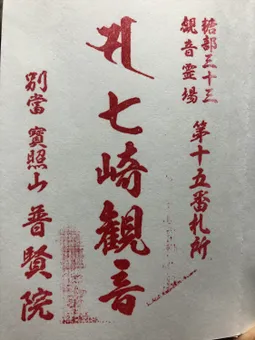 糠部三十三
観音霊場
第十五番札所
七崎観音
別當 寳照山 普賢院